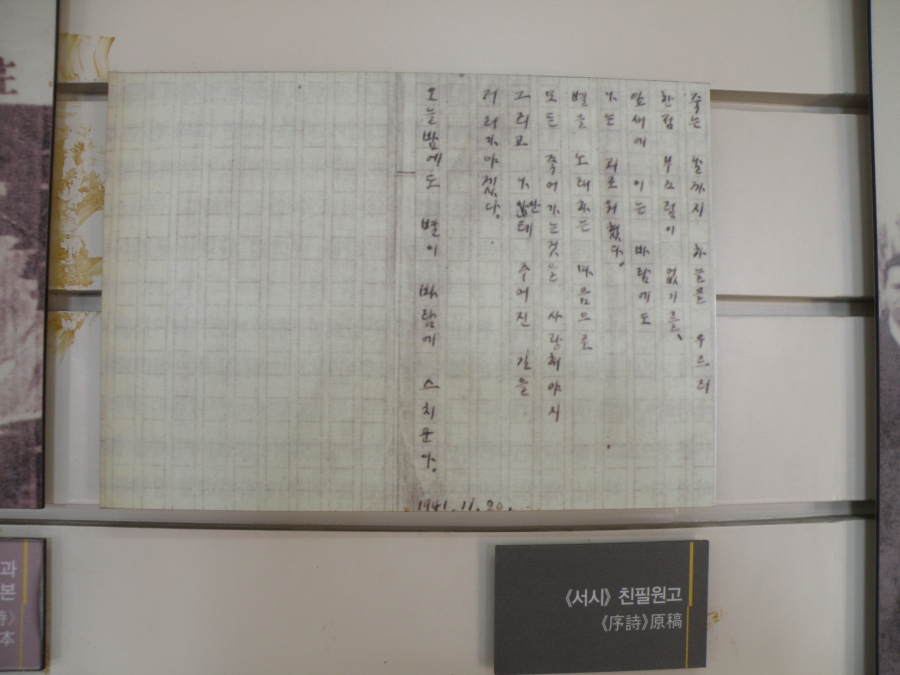 죽는 날까지 하늘을 우르러
한점 부끄럼이 없기를,
잎새에 이는 바람에도
나는 괴로워했다.
별을 노래하는 마음으로
모든 죽어가는것을 사랑해야지
그리고 나안테 주어진 길을
거러가야겠다.
오늘밤에도 별이 바람에 스치운다.
1941.11.20.
《서시》 친필원고
《序詩》原稿
과
본
詩》
本